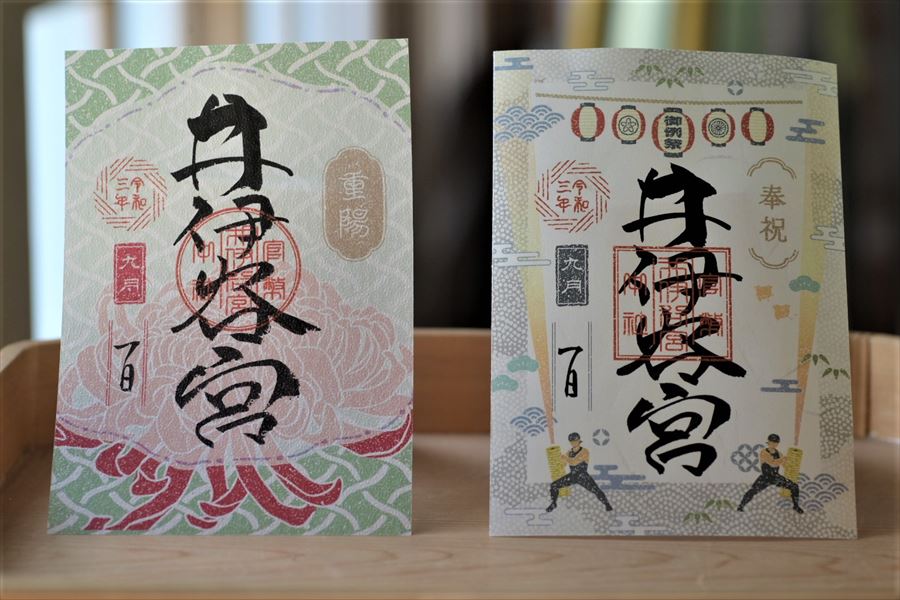 重陽
井伊谷宮
令和
三年
九月
一日
御例祭
奉祝
井伊谷宮
令和
三年
九月
一日